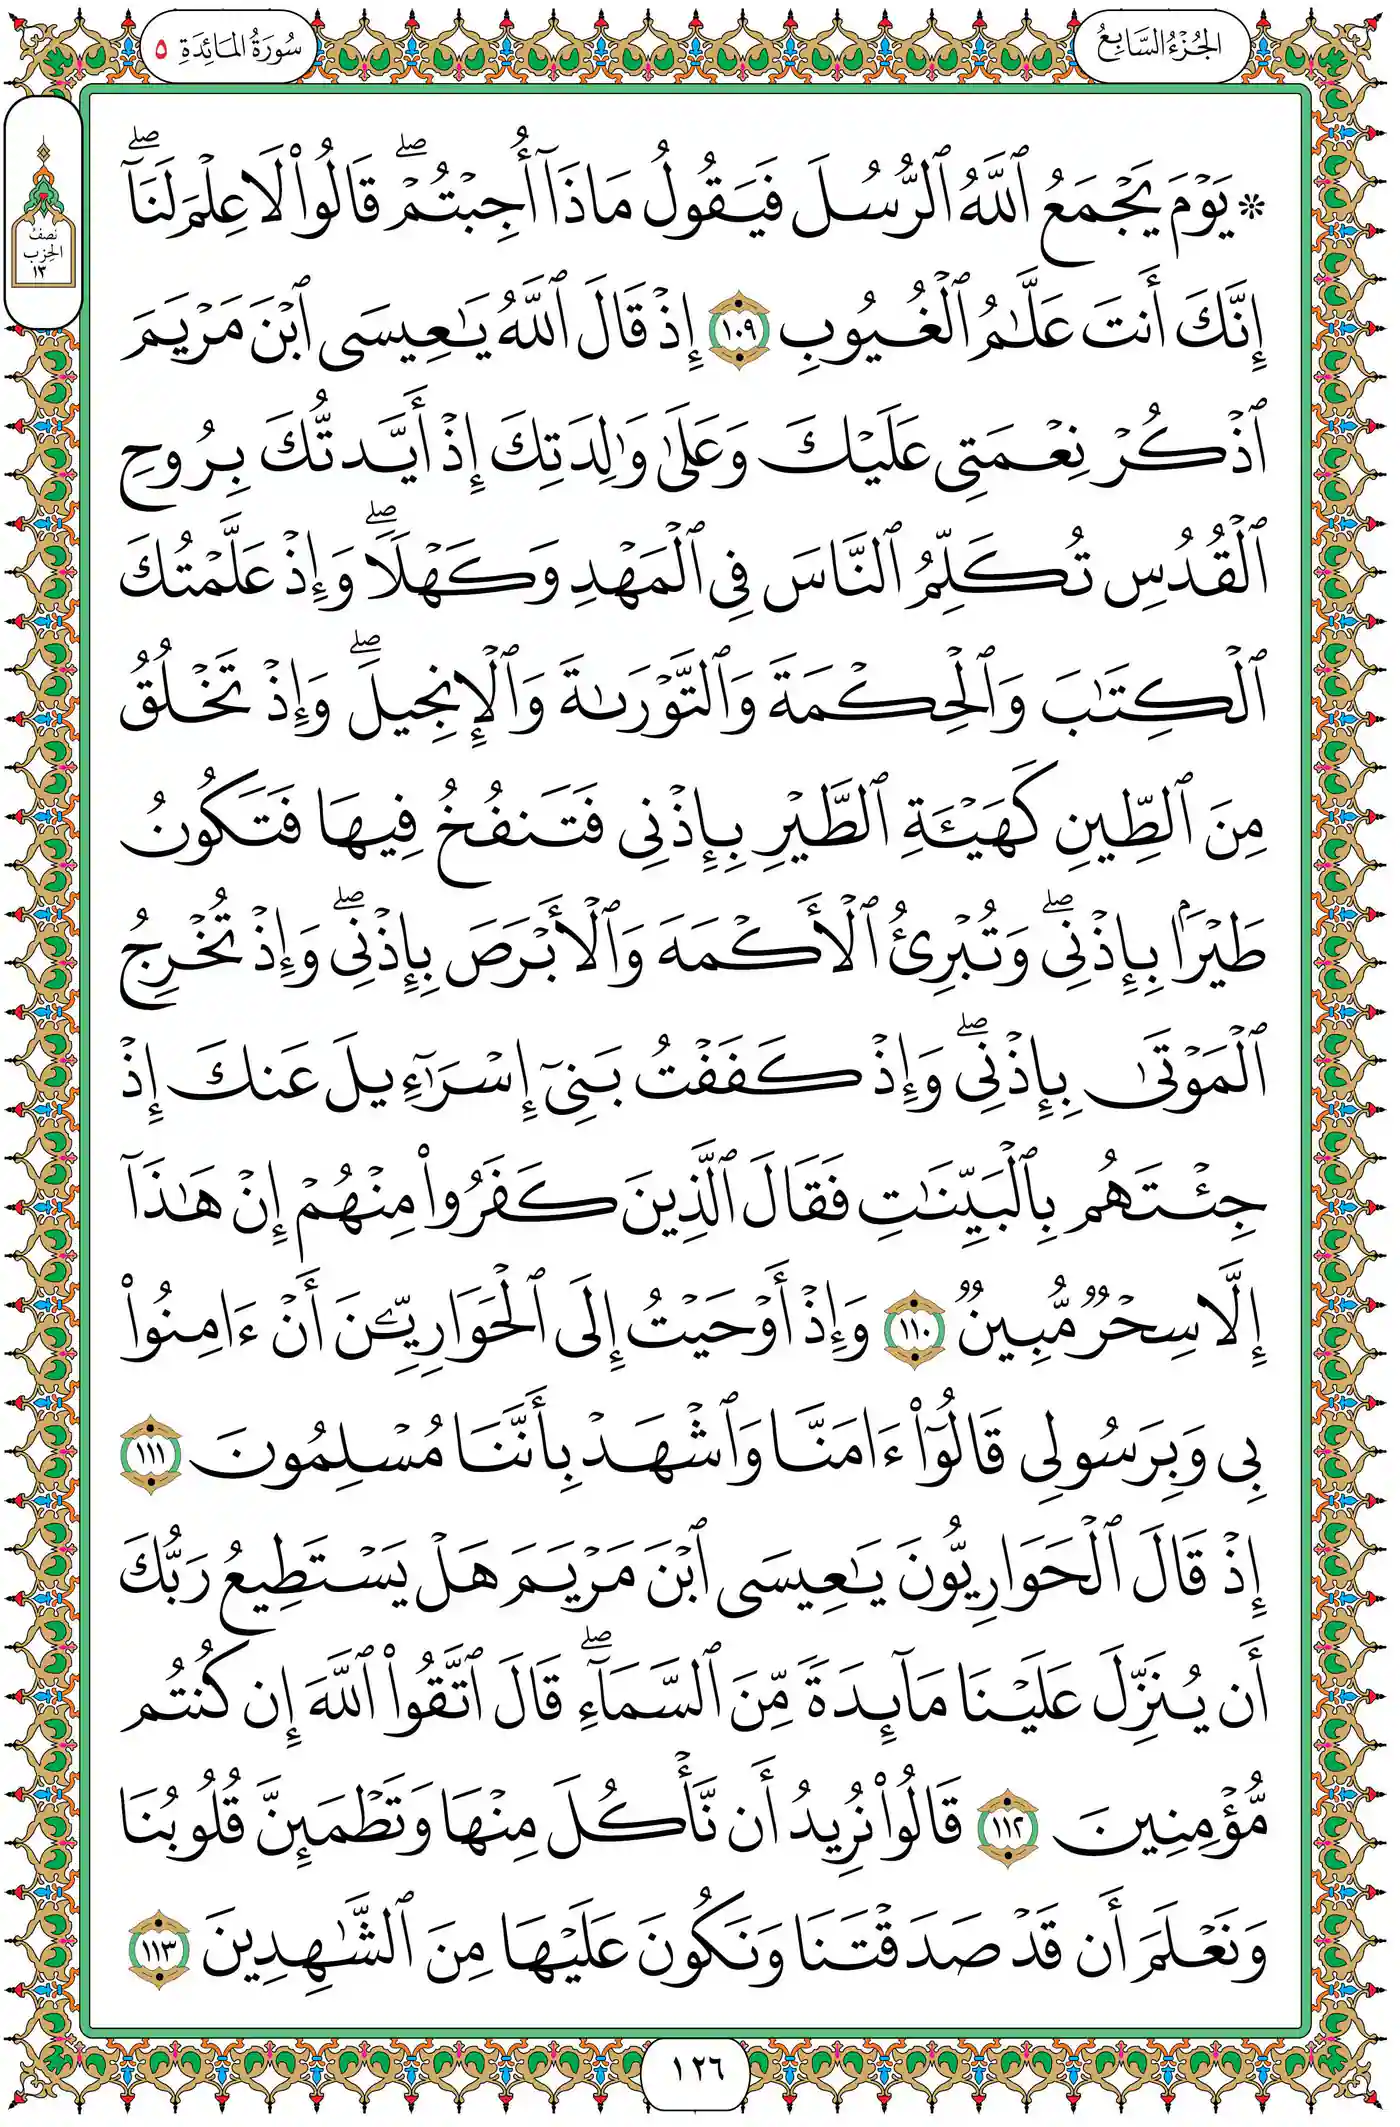 الجُزْءُ السَّابِعُ
سُورَةُ المَائِدَةِ ٥
نصف
الحزب
١٣
۞ يَوْمَ يَجْمَعُ ٱللَّهُ ٱلرُّسُلَ فَيَقُولُ مَاذَآ أُجِبْتُمْۖ قَالُوا۟ لَا عِلْمَ لَنَآۖ
إِنَّكَ أَنتَ عَلَّٰمُ ٱلْغُيُوبِ ١٠٩ إِذْ قَالَ ٱللَّهُ يَٰعِيسَى ٱبْنَ مَرْيَمَ
ٱذْكُرْ نِعْمَتِى عَلَيْكَ وَعَلَىٰ وَٰلِدَتِكَ إِذْ أَيَّدتُّكَ بِرُوحِ
ٱلْقُدُسِ تُكَلِّمُ ٱلنَّاسَ فِى ٱلْمَهْدِ وَكَهْلًاۖ وَإِذْ عَلَّمْتُكَ
ٱلْكِتَٰبَ وَٱلْحِكْمَةَ وَٱلتَّوْرَىٰةَ وَٱلْإِنجِيلَۖ وَإِذْ تَخْلُقُ
مِنَ ٱلطِّينِ كَهَيْـَٔةِ ٱلطَّيْرِ بِإِذْنِى فَتَنفُخُ فِيهَا فَتَكُونُ
طَيْرًۢا بِإِذْنِىۖ وَتُبْرِئُ ٱلْأَكْمَهَ وَٱلْأَبْرَصَ بِإِذْنِىۖ وَإِذْ تُخْرِجُ
ٱلْمَوْتَىٰ بِإِذْنِىۖ وَإِذْ كَفَفْتُ بَنِىٓ إِسْرَٰٓءِيلَ عَنكَ إِذْ
جِئْتَهُم بِٱلْبَيِّنَٰتِ فَقَالَ ٱلَّذِينَ كَفَرُوا۟ مِنْهُمْ إِنْ هَٰذَآ
إِلَّا سِحْرٌ مُّبِينٌ ١١٠ وَإِذْ أَوْحَيْتُ إِلَى ٱلْحَوَارِيِّۦنَ أَنْ ءَامِنُوا۟
بِى وَبِرَسُولِى قَالُوٓا۟ ءَامَنَّا وَٱشْهَدْ بِأَنَّنَا مُسْلِمُونَ ١١١
إِذْ قَالَ ٱلْحَوَارِيُّونَ يَٰعِيسَى ٱبْنَ مَرْيَمَ هَلْ يَسْتَطِيعُ رَبُّكَ
أَن يُنَزِّلَ عَلَيْنَا مَآئِدَةً مِّنَ ٱلسَّمَآءِۖ قَالَ ٱتَّقُوا۟ ٱللَّهَ إِن كُنتُم
مُّؤْمِنِينَ ١١٢ قَالُوا۟ نُرِيدُ أَن نَّأْكُلَ مِنْهَا وَتَطْمَئِنَّ قُلُوبُنَا
وَنَعْلَمَ أَن قَدْ صَدَقْتَنَا وَنَكُونَ عَلَيْهَا مِنَ ٱلشَّٰهِدِينَ ١١٣
١٢٦